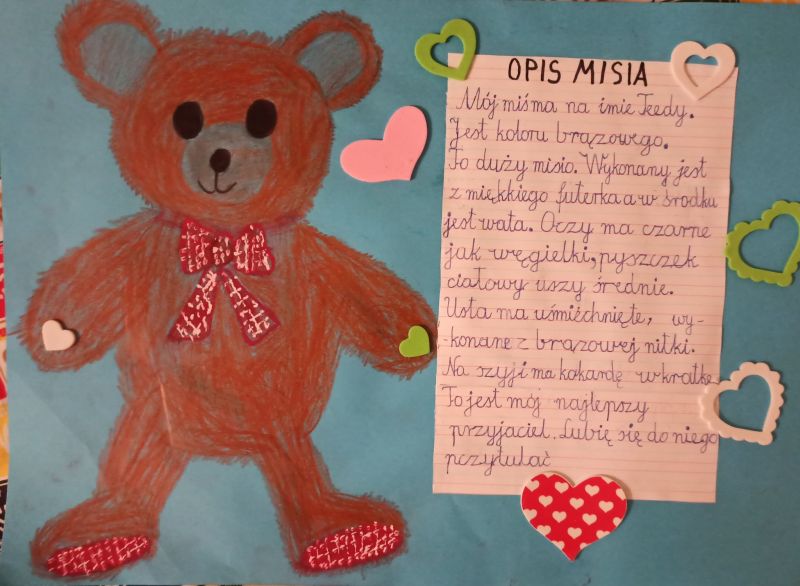 OPIS MISIA
Mój miś ma na imie Teedy.
Jest koloru brązowego.
To duży misio. Wykonany jest
z miękkiego futerka a w środku
jest wata. Oczy ma czarne
jak węgielki, pyszczek
ciałowy uszy średnie.
Usta ma uśmiechnięte, wy-
-konane z brązowej nitki.
Na szyji ma kokardę w kratkę
To jest mój najlepszy
przyjaciel. Lubię się do niego
pczytulać